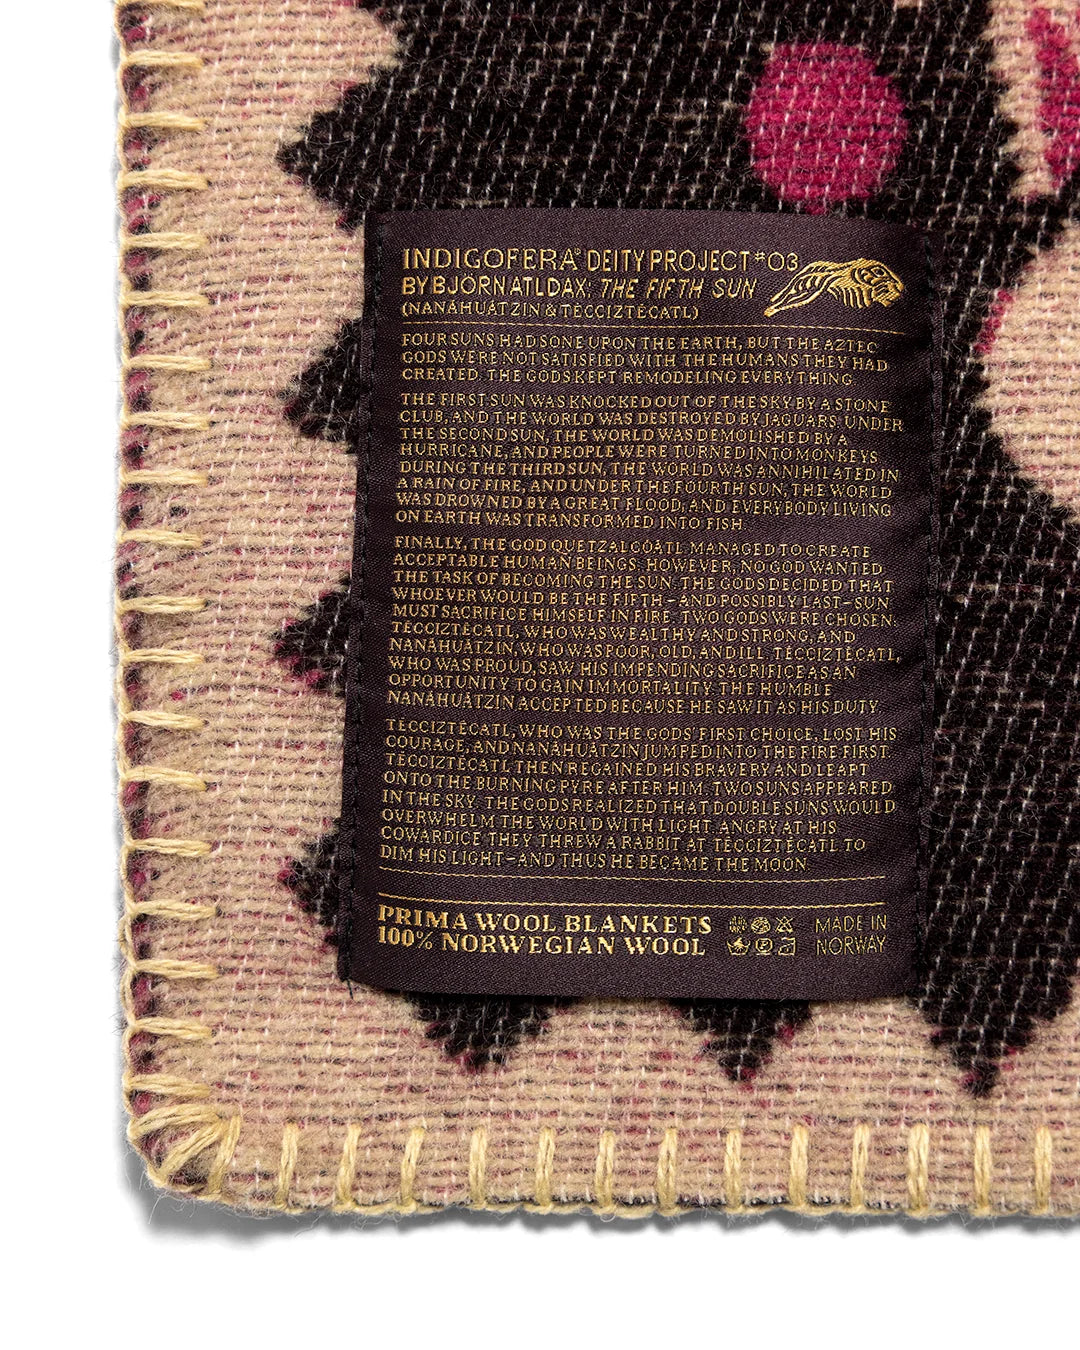 INDIGOFERA® DEITY PROJECT #03
BY BJÖRN ATLDAX: THE FIFTH SUN
(NANÁHUÁTZIN & TĒCCIZTĒCATL)
FOUR SUNS HAD SONE UPON THE EARTH, BUT THE AZTEC
GODS WERE NOT SATISFIED WITH THE HUMANS THEY HAD
CREATED. THE GODS KEPT REMODELING EVERYTHING.
THE FIRST SUN WAS KNOCKED OUT OF THE SKY BY A STONE
CLUB, AND THE WORLD WAS DESTROYED BY JAGUARS. UNDER
THE SECOND SUN, THE WORLD WAS DEMOLISHED BY A
HURRICANE, AND PEOPLE WERE TURNED INTO MONKEYS.
DURING THE THIRD SUN, THE WORLD WAS ANNIHILATED IN
A RAIN OF FIRE, AND UNDER THE FOURTH SUN, THE WORLD
WAS DROWNED BY A GREAT FLOOD, AND EVERYBODY LIVING
ON EARTH WAS TRANSFORMED INTO FISH.
FINALLY, THE GOD QUETZALCÓATL MANAGED TO CREATE
ACCEPTABLE HUMAN BEINGS. HOWEVER, NO GOD WANTED
THE TASK OF BECOMING THE SUN. THE GODS DECIDED THAT
WHOEVER WOULD BE THE FIFTH–AND POSSIBLY LAST–SUN
MUST SACRIFICE HIMSELF IN FIRE. TWO GODS WERE CHOSEN:
TĒCCIZTĒCATL, WHO WAS WEALTHY AND STRONG, AND
NANÁHUÁTZIN, WHO WAS POOR, OLD, AND ILL. TĒCCIZTĒCATL,
WHO WAS PROUD, SAW HIS IMPENDING SACRIFICE AS AN
OPPORTUNITY TO GAIN IMMORTALITY. THE HUMBLE
NANÁHUÁTZIN ACCEPTED BECAUSE HE SAW IT AS HIS DUTY.
TĒCCIZTĒCATL, WHO WAS THE GODS' FIRST CHOICE, LOST HIS
COURAGE, AND NANÁHUÁTZIN JUMPED INTO THE FIRE FIRST.
TĒCCIZTĒCATL THEN REGAINED HIS BRAVERY AND LEAPT
ONTO THE BURNING PYRE AFTER HIM. TWO SUNS APPEARED
IN THE SKY. THE GODS REALIZED THAT DOUBLE SUNS WOULD
OVERWHELM THE WORLD WITH LIGHT. ANGRY AT HIS
COWARDICE THEY THREW A RABBIT AT TĒCCIZTĒCATL TO
DIM HIS LIGHT–AND THUS HE BECAME THE MOON.
PRIMA WOOL BLANKETS
100% NORWEGIAN WOOL
MADE IN
NORWAY